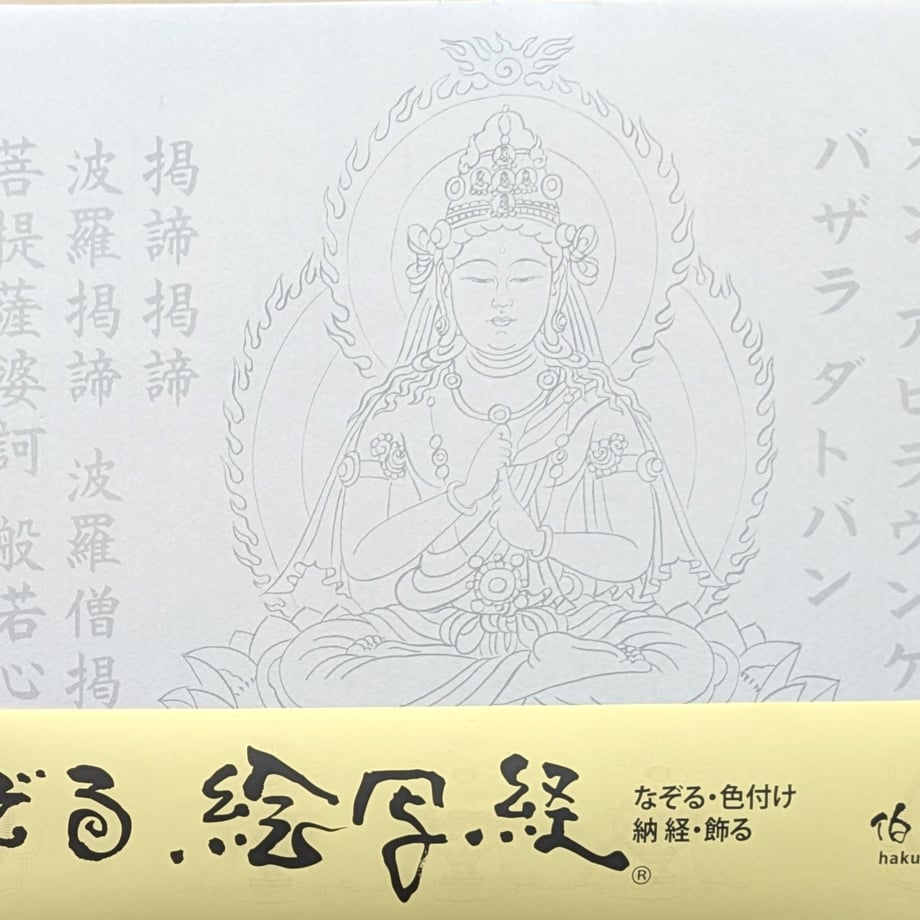 オン アビラウンケ
バザラ ダトバン
掲諦掲諦
波羅掲諦 波羅僧掲
菩提薩婆訶 般若心
ぞる 絵写経®
なぞる・色付け
納経・飾る
伯
haku